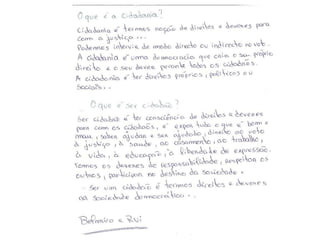 O que é a cidadania?
Cidadania é termos noção de direitos e deveres para
com a justiça...
Podemos intervir de modo directo ou indirecto no voto.
A cidadania é uma democracia que cala o seu próprio
direito e o seu dever perante todos os cidadãos.
A cidadania é ter direitos próprios, políticos ou
sociais..
O que é ser cidadão?
Ser cidadão é ter consciência de direitos e deveres
para com os cidadãos, é expor tudo o que é bom e
mau, saber ajudar e ser ajudado, direito ao voto
à justiça, à saúde, ao casamento, ao trabalho,
à vida, à educação, à liberdade de expressão.
Temos os deveres de responsabilidade, respeitar os
outros, participar no destino da sociedade.
- Ser um cidadão é termos direitos e deveres
na sociedade democrática..
e Rui